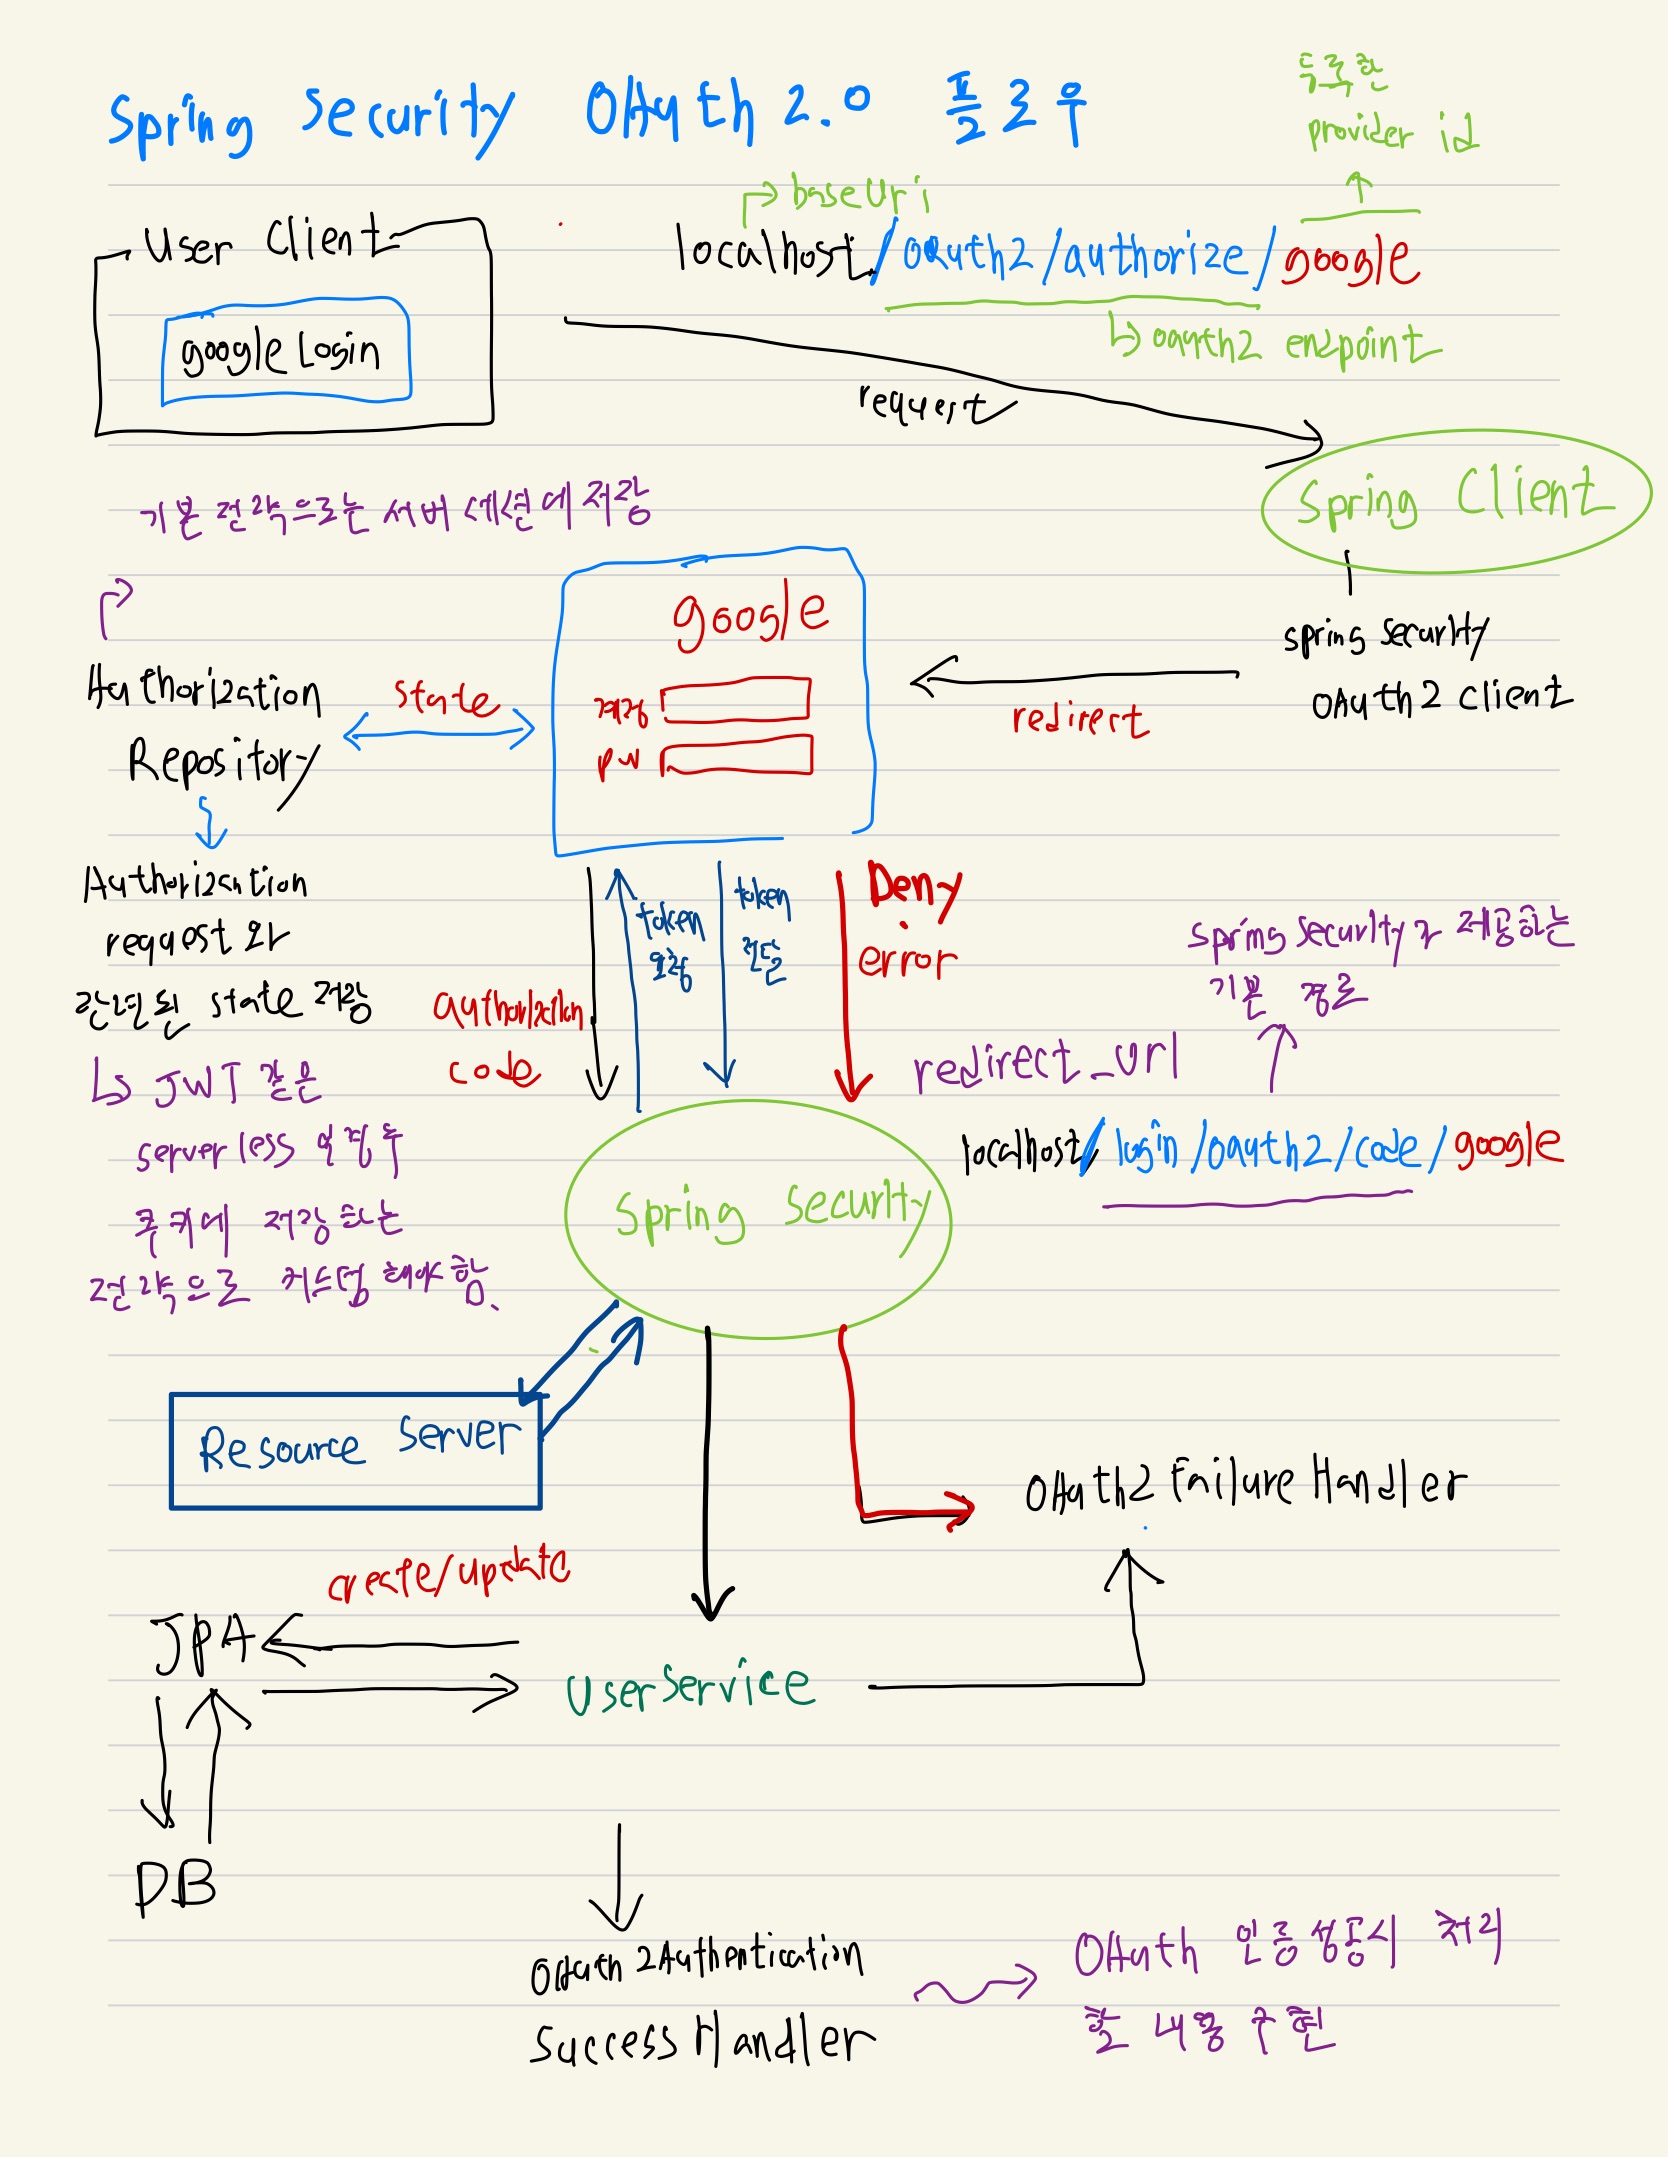 Spring Security OAuth 2.0 플로우
등록한
provider id
baseUri
User Client
localhost/oauth2/authorize/google
google Login
oauth2 endpoint
request
Spring Client
기본 전략으로는 서버 세션에 저장
google
spring security
OAuth2 client
Authorization
Repository
state
계정
pw
redirect
Authorization
request와
관련된 state 저장
token
요청
token
전달
Deny
error
authorization
code
spring security가 제공하는
기본 경로
redirect_url
JWT 같은
serverless 일 경우
쿠키에 저장하는
전략으로 커스텀 해야함.
localhost/login/oauth2/code/google
Spring Security
Resource Server
OAuth2 Failure Handler
create/update
JPA
UserService
DB
OAuth2Authentication
Success Handler
OAuth 인증 성공시 처리
할 내용 구현